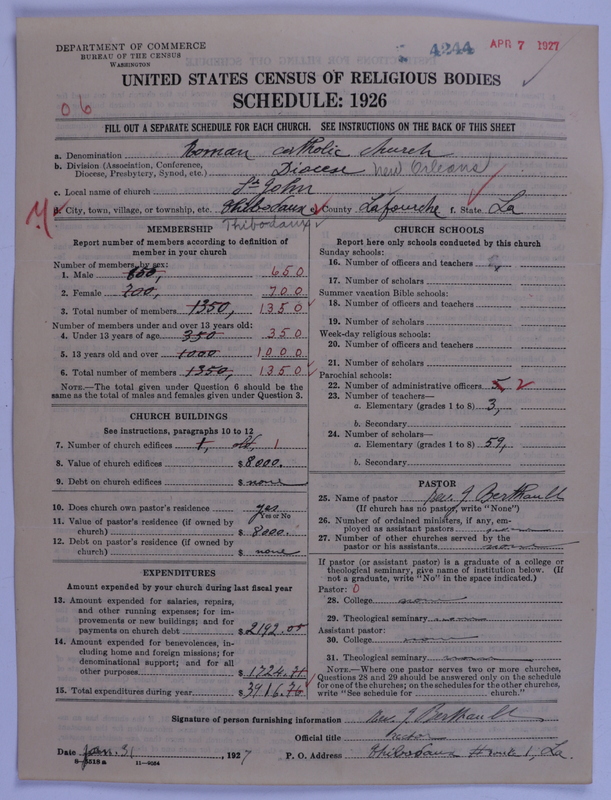 4244 APR 7 1927
DEPARTMENT OF COMMERCE
BUREAU OF THE CENSUS
WASHINGTON
UNITED STATES CENSUS OF RELIGIOUS BODIES
SCHEDULE: 1926
06
FILL OUT A SEPARATE SCHEDULE FOR EACH CHURCH. SEE INSTRUCTIONS ON THE BACK OF THIS SHEET
a. Denomination Roman Catholic Church
b. Division (Association, Conference,
Diocese, Presbytery, Synod, etc.) Diocese New Orleans
c. Local name of church St John
d. City, town, village, or township, etc. Thibodaux e. County Lafourche f. State La
Thibodaux
MEMBERSHIP
Report number of members according to definition of
member in your church
Number of members by sex:
1. Male 650, 650
2. Female 700, 700
3. Total number of members 1350, 1350
Number of members under and over 13 years old:
4. Under 13 years of age 350 350
5. 13 years old and over 1000 1000
6. Total number of members 1350, 1350
NOTE.—The total given under Question 6 should be the
same as the total of males and females given under Question 3.
CHURCH BUILDINGS
See instructions, paragraphs 10 to 12
7. Number of church edifices 1, old, 1
8. Value of church edifices $8000.
9. Debt on church edifices $ none
10. Does church own pastor's residence yes
Yes or No
11. Value of pastor's residence (if owned by
church) $8000.
12. Debt on pastor's residence (if owned by
church) $ none
EXPENDITURES
Amount expended by your church during last fiscal year
13. Amount expended for salaries, repairs,
and other running expenses; for im-
provements or new buildings; and for
payments on church debt $2192.05
14. Amount expended for benevolences, in-
cluding home and foreign missions; for
denominational support; and for all
other purposes $1724.71
15. Total expenditures during year $3916.76
CHURCH SCHOOLS
Report here only schools conducted by this church
Sunday schools:
16. Number of officers and teachers
17. Number of scholars
Summer vacation Bible schools:
18. Number of officers and teachers
19. Number of scholars
Week-day religious schools:
20. Number of officers and teachers
21. Number of scholars
Parochial schools:
22. Number of administrative officers 5, 2
23. Number of teachers—
a. Elementary (grades 1 to 8) 3,
b. Secondary
24. Number of scholars—
a. Elementary (grades 1 to 8) 59,
b. Secondary
PASTOR
25. Name of pastor Rev. J Berthault
(If church has no pastor, write "None")
26. Number of ordained ministers, if any, em-
ployed as assistant pastors none
27. Number of other churches served by the
pastor or his assistants none
If pastor (or assistant pastor) is a graduate of a college or
theological seminary, give name of institution below. (If
not a graduate, write "No" in the space indicated.)
Pastor: 0
28. College none
29. Theological seminary none
Assistant pastor:
30. College none
31. Theological seminary none
NOTE.—Where one pastor serves two or more churches,
Questions 28 and 29 should be answered only on the schedule
for one of the churches; on the schedules for the other churches,
write "See schedule for church."
Signature of person furnishing information Rev. J Berthault
Official title Rector
Date Jan. 31, 1927 P. O. Address Thibodaux Route 1, La.
8-5518a 11-9034